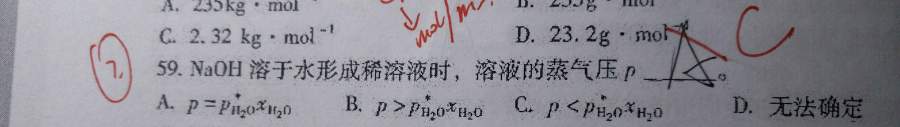 A. 235kg·mol
C. 2.32 kg·mol⁻¹ mol/m³ D. 23.2g·mol C
7. 59. NaOH 溶于水形成稀溶液时，溶液的蒸气压 p ______。
A. p=p*H₂OxH₂O B. p>p*H₂OxH₂O C. p<p*H₂OxH₂O D. 无法确定